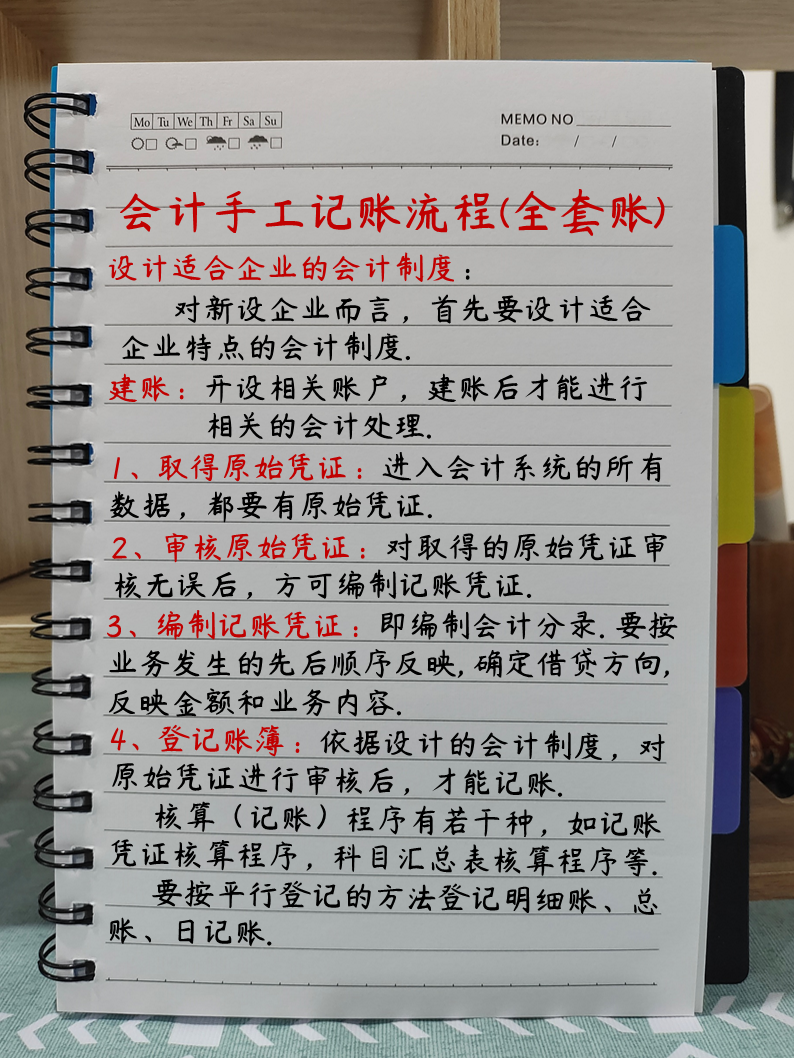 Mo Tu We Th Fr Sa Su
MEMO NO
Date: / /
会计手工记账流程(全套账)
设计适合企业的会计制度：
对新设企业而言，首先要设计适合
企业特点的会计制度.
建账：开设相关账户，建账后才能进行
相关的会计处理.
1、取得原始凭证：进入会计系统的所有
数据，都要有原始凭证.
2、审核原始凭证：对取得的原始凭证审
核无误后，方可编制记账凭证.
3、编制记账凭证：即编制会计分录.要按
业务发生的先后顺序反映,确定借贷方向,
反映金额和业务内容.
4、登记账簿：依据设计的会计制度，对
原始凭证进行审核后，才能记账.
核算（记账）程序有若干种，如记账
凭证核算程序，科目汇总表核算程序等.
要按平行登记的方法登记明细账、总
账、日记账.